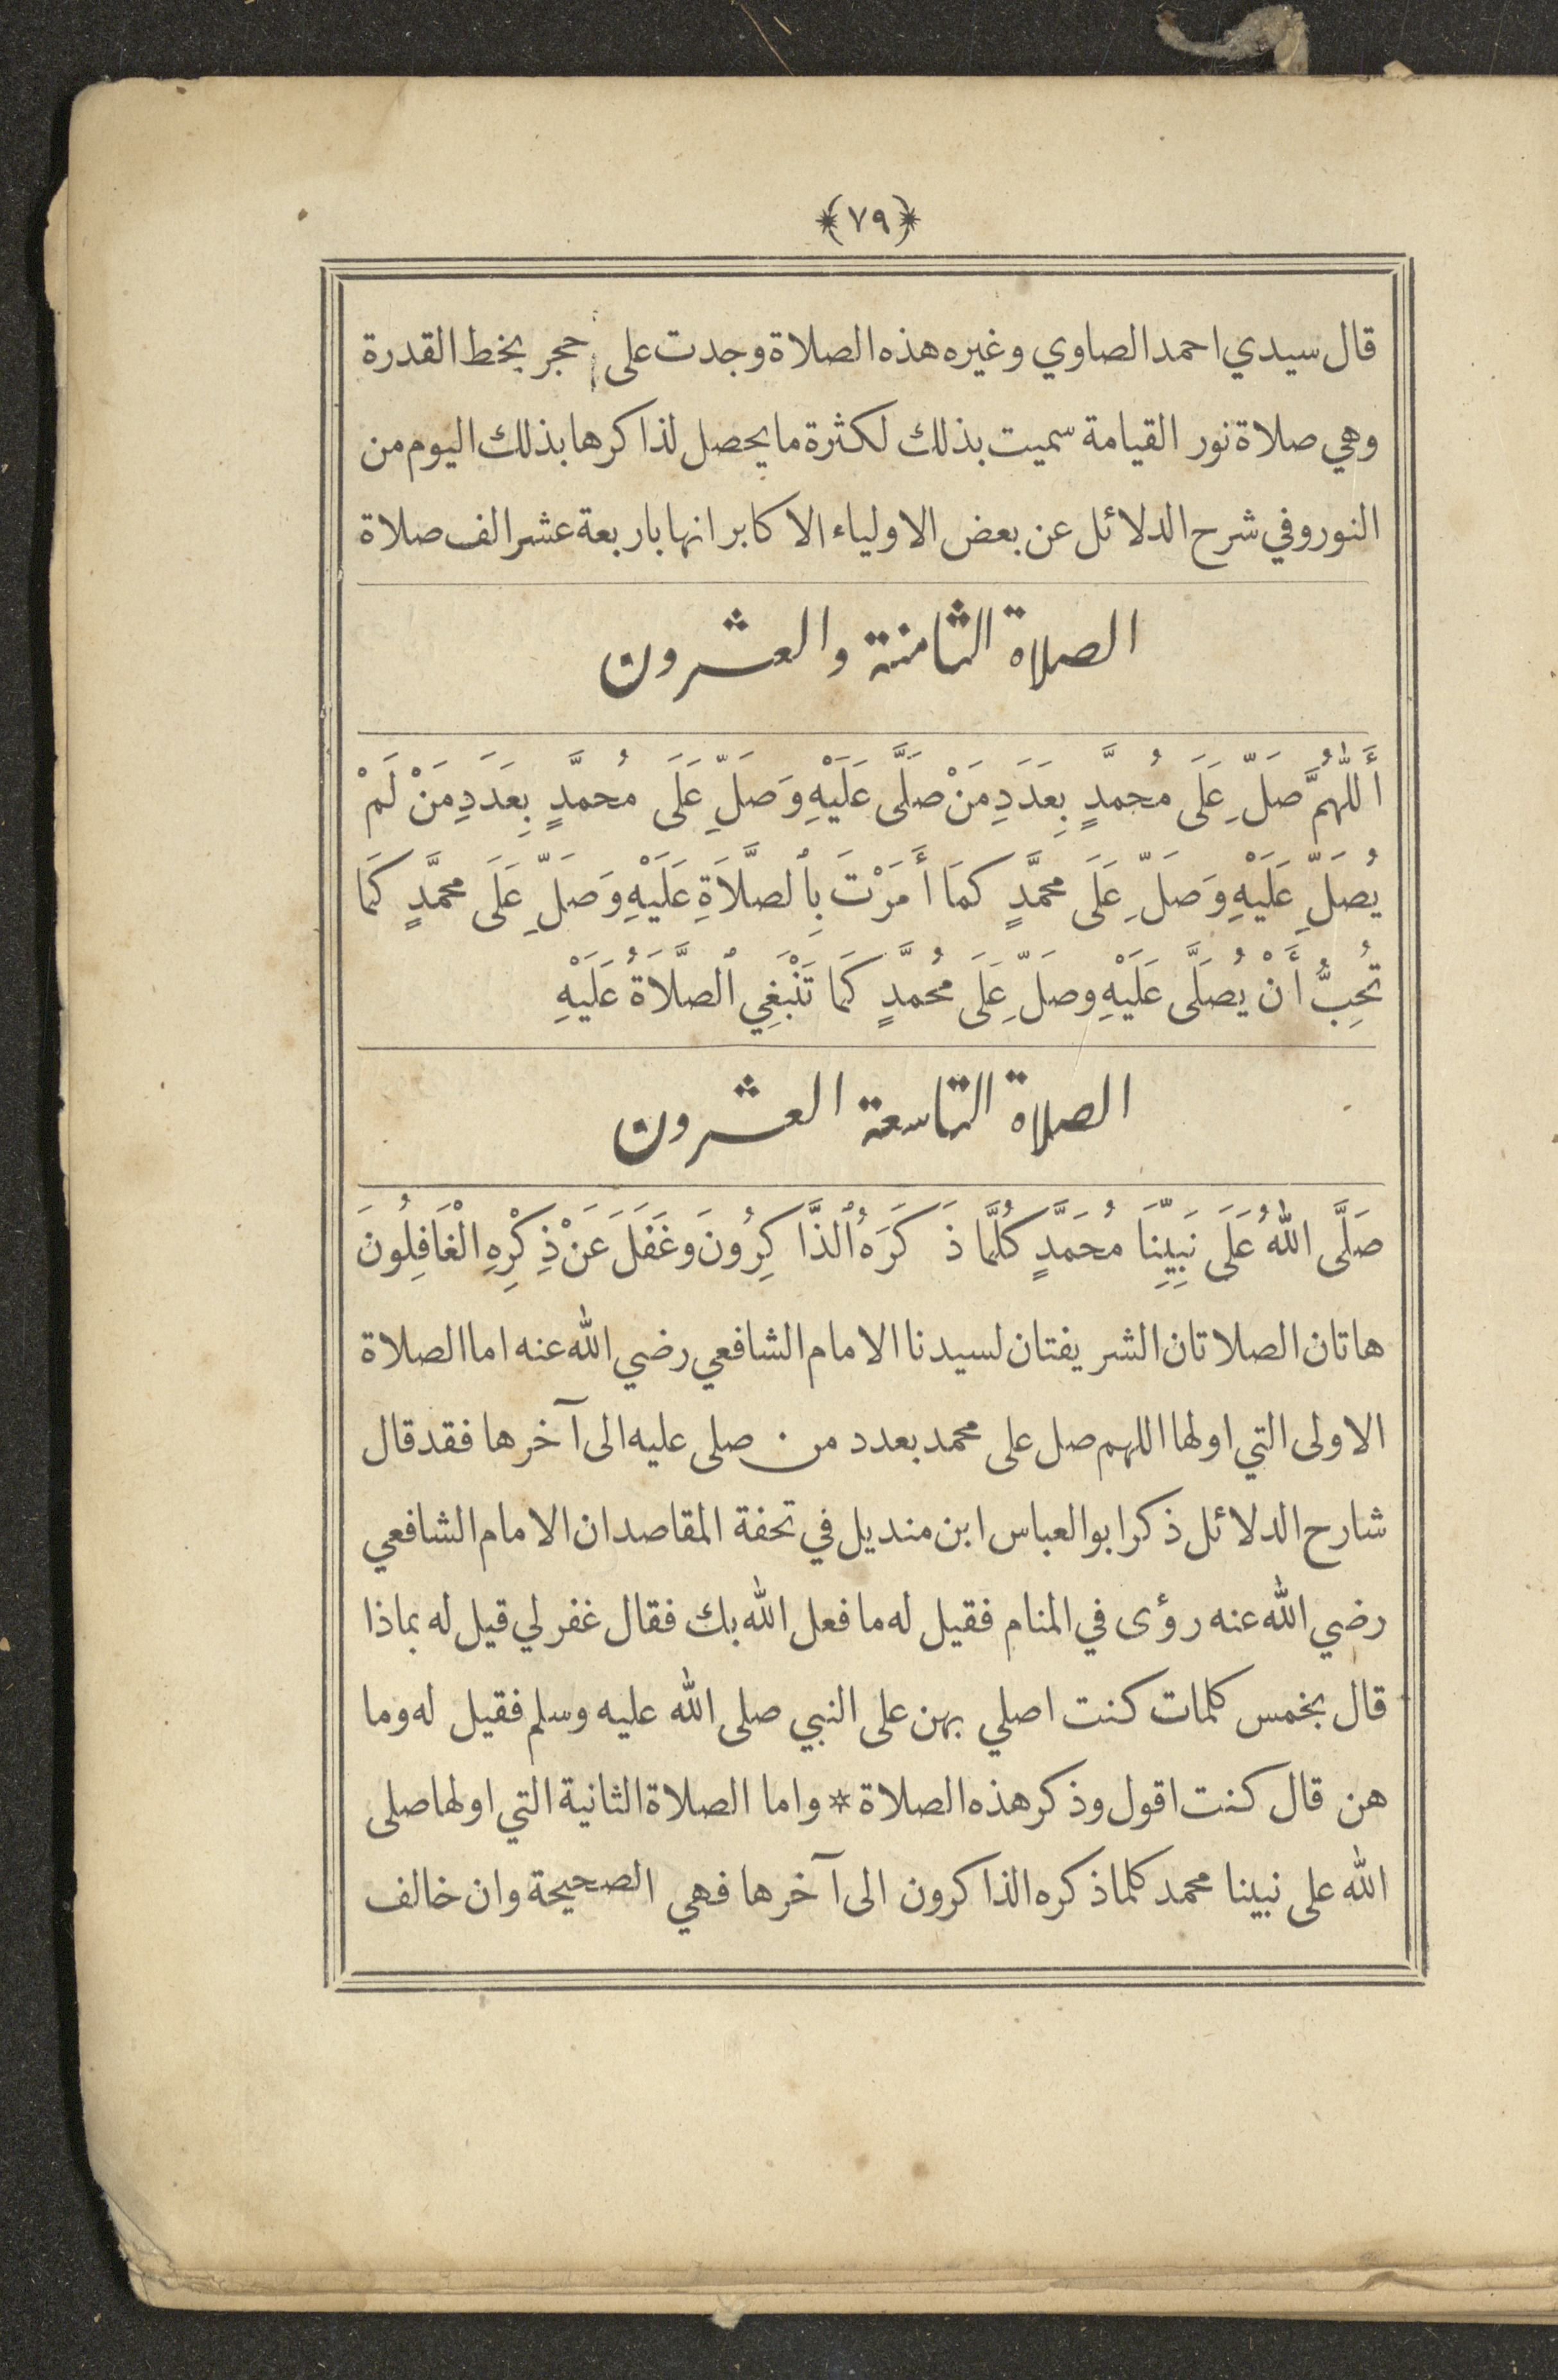 ﴿٧٩﴾
قال سيدي احمد الصاوي وغيره هذه الصلاة وجدت على حجر بخط القدرة
وهي صلاة نور القيامة سميت بذلك لكثرة ما يحصل لذاكرها بذلك اليوم من
النور وفي شرح الدلائل عن بعض الاولياء الاكابر انها باربعة عشر الف صلاة
الصلاة الثامنة والعشرون
أَللّٰهُمَّ صَلِّ عَلَى مُحمَّدٍ بِعَدَدِ مَنْ صَلَّى عَلَيْهِ وَصَلِّ عَلَى مُحمَّدٍ بِعَدَدِ مَنْ لَمْ
يُصَلِّ عَلَيْهِ وَصَلِّ عَلَى محمَّدٍ كمَا أَمَرْتَ بِٱلصَّلَاةِ عَلَيْهِ وَصَلِّ عَلَى محمَّدٍ كَمَا
تُحِبُّ أَنْ يُصَلَّى عَلَيْهِ وصَلِّ عَلَى مُحُمَّدٍ كَمَا تَنْبَغِي ٱلصَّلَاةُ عَلَيْهِ
الصلاة التاسعة العشرون
صَلَّى اللهُ عَلَى نَبِيِّنَا مُحَمَّدٍ كُلَّمَا ذَكَرَهُ ٱلذَّاكِرُونَ وَغَفَلَ عَنْ ذِكْرِهِ الْغَافِلُونَ
هاتان الصلاتان الشريفتان لسيدنا الامام الشافعي رضي الله عنه اما الصلاة
الاولى التي اولها اللهم صل على محمد بعدد من صلى عليه الى آخرها فقد قال
شارح الدلائل ذكر ابو العباس ابن منديل في تحفة المقاصد ان الامام الشافعي
رضي الله عنه رؤى في المنام فقيل له ما فعل الله بك فقال غفر لي قيل له بماذا
قال بخمس كلمات كنت اصلي بهن على النبي صلى الله عليه وسلم فقيل له وما
هن قال كنت اقول وذكر هذه الصلاة * واما الصلاة الثانية التي اولها صلى
الله على نبينا محمد كلما ذكره الذاكرون الى آخرها فهي الصحيحة وان خالف